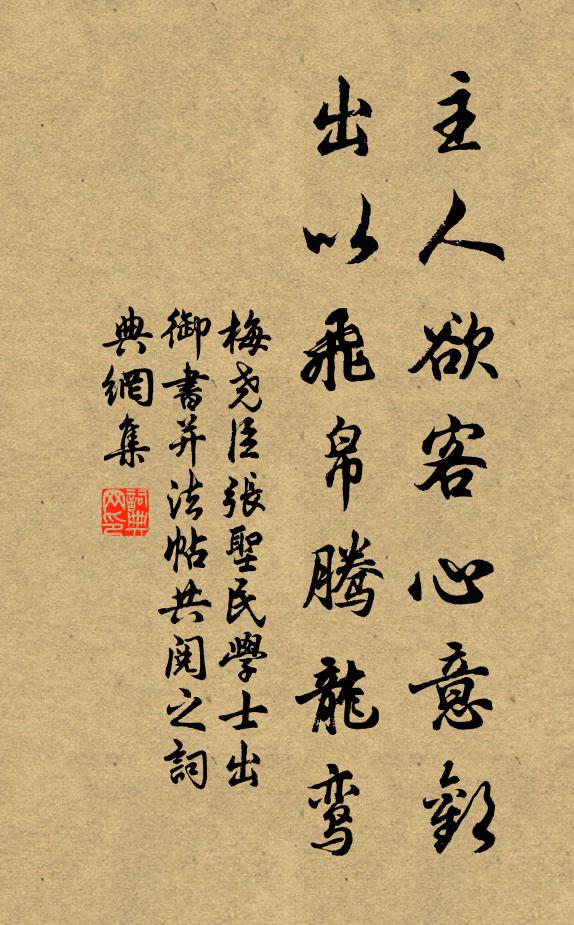 主人欲客心意歡
出以飛帛騰龍鸾
梅尧臣張聖民學士出
御書并法帖共閱之詞
典網集
詞典网印